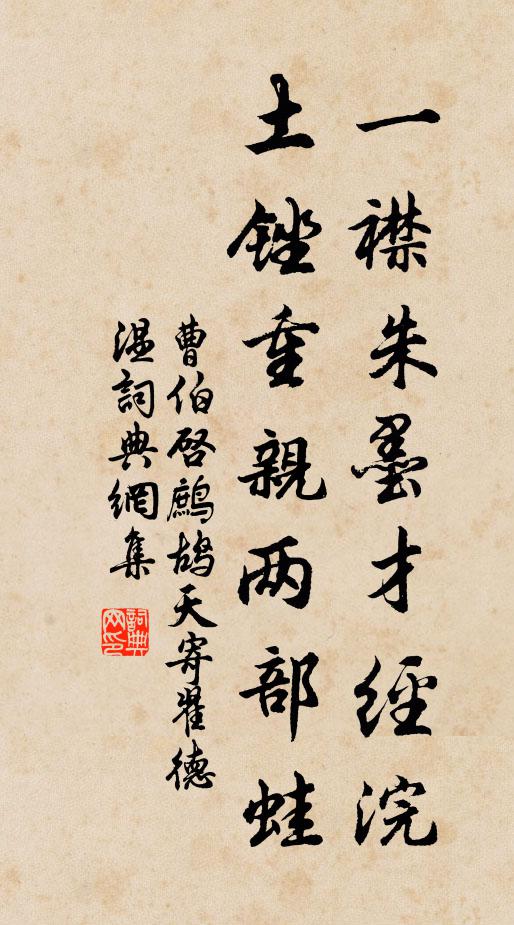 一襟朱墨才經浣
土銼重親两部蛙
曹伯啓鷓鴣天寄翟德
温詞典網集
詞典網印